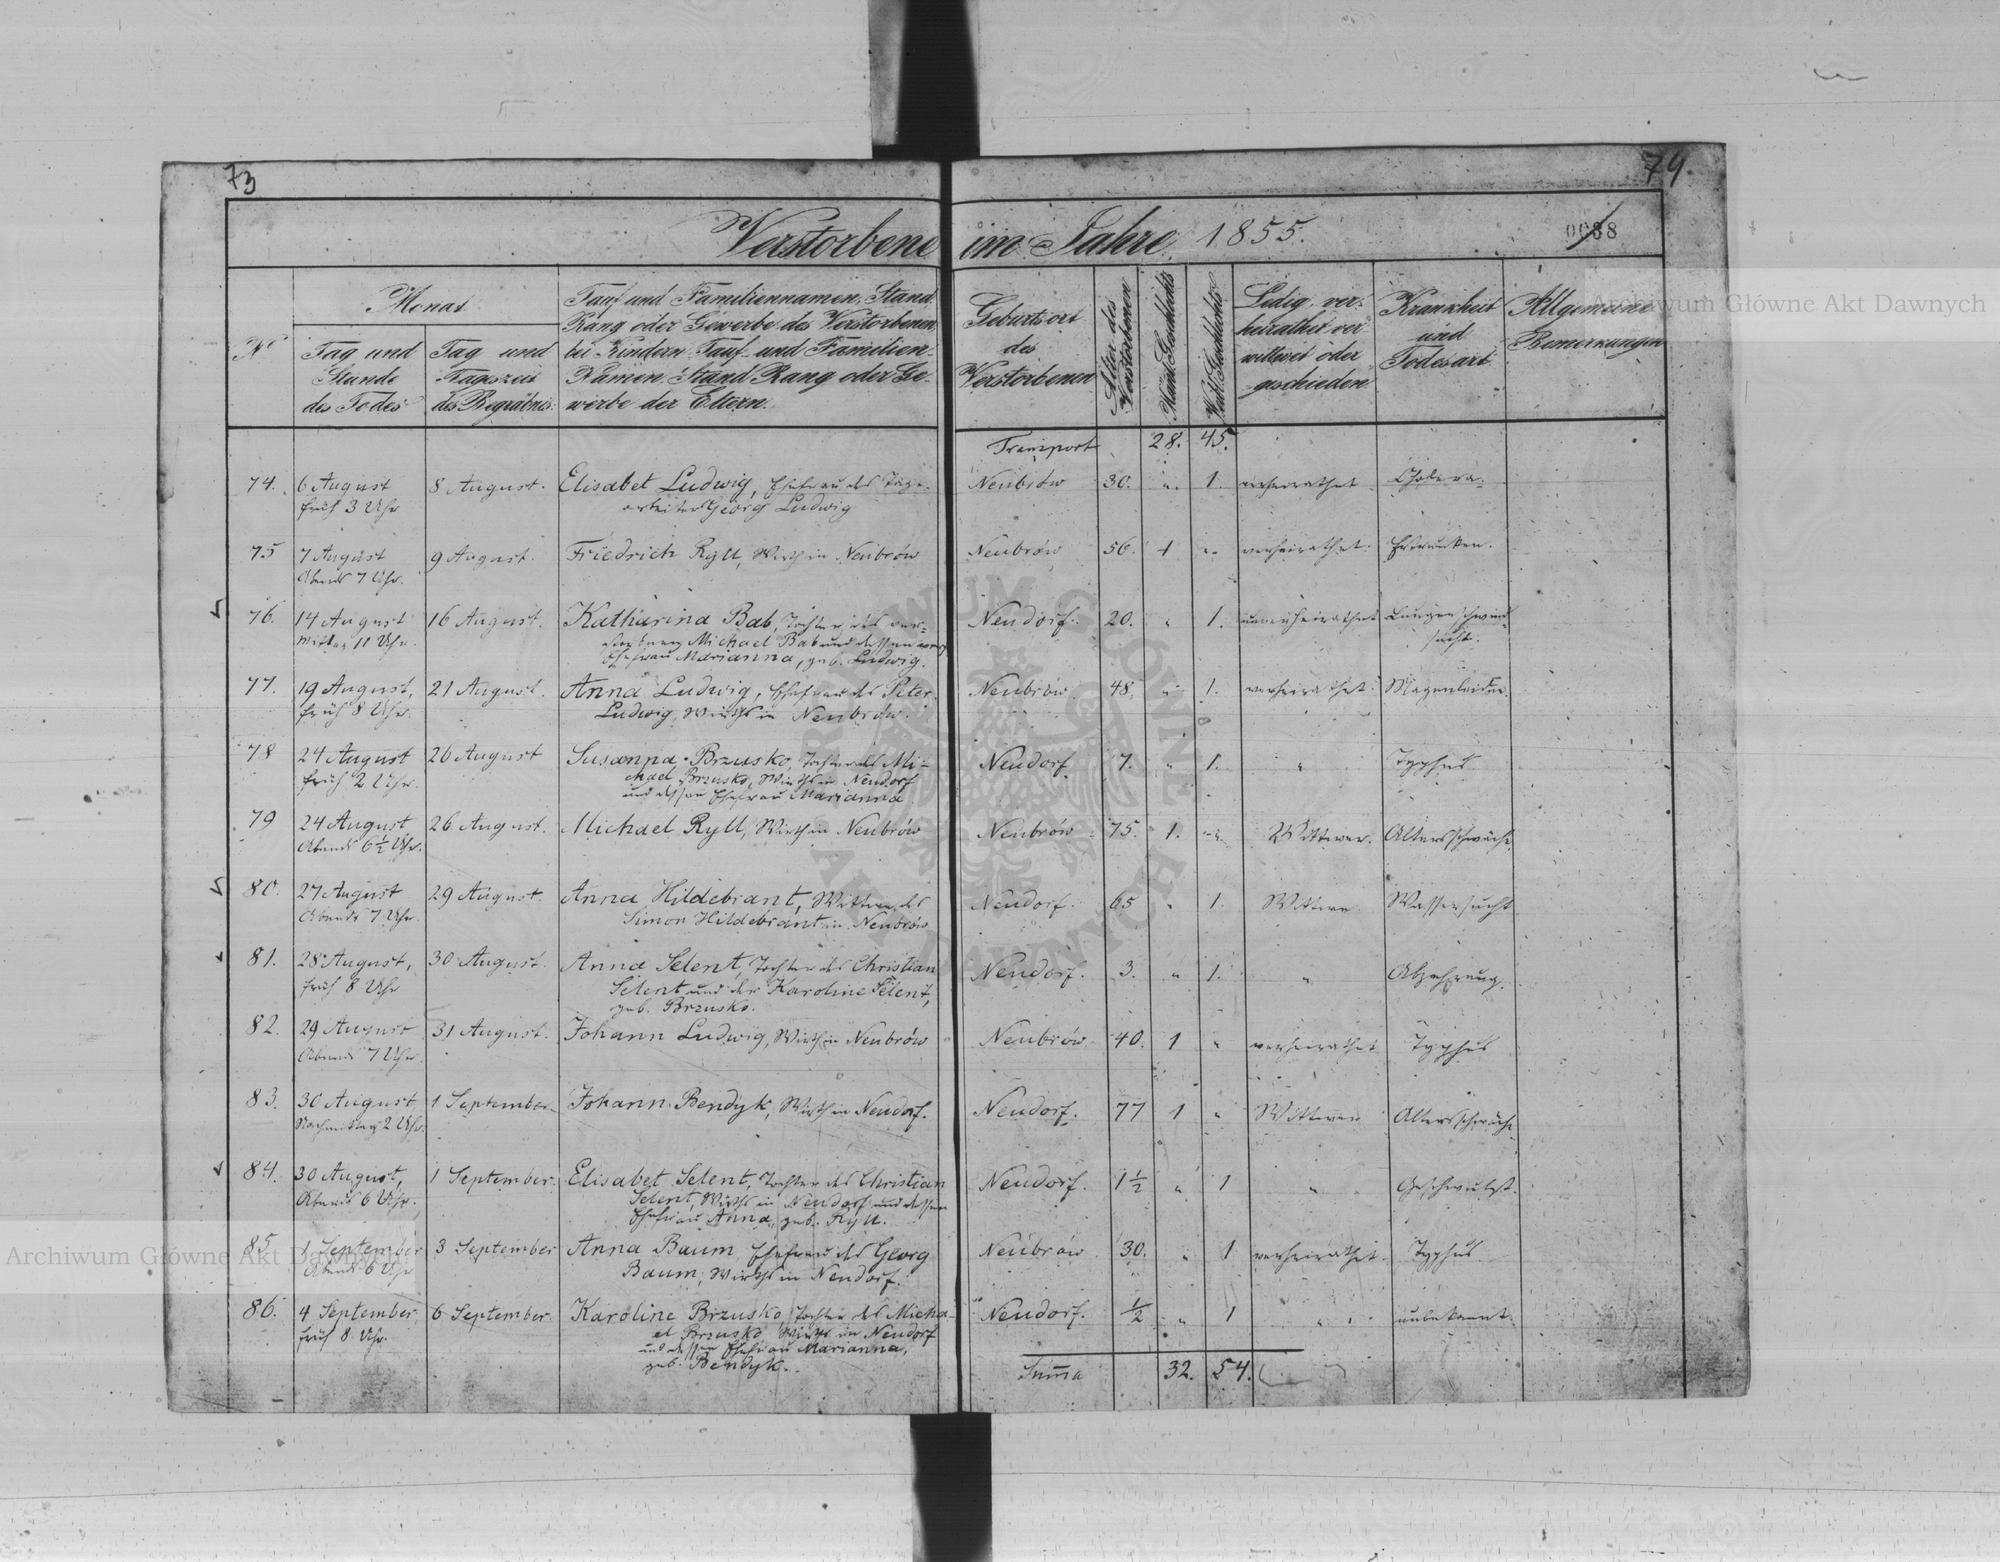 73
79.
Verstorbene im Jahre 1855.
0088
No
Monat
Tag und
Stunde
des Todes
Tag und
Tagszeit
des Begräbnis:
Tauf und Familiennamen, Stand
Rang oder Gewerbe des Verstorbenen,
bei Kindern Tauf- und Familien-
Namen Stand Rang oder Ge-
werbe der Eltern.
Geburtsort
des
Verstorbenen
Alter des
Verstorbenen
Männl. Geschlechts
Weibl. Geschlechts
Ledig, ver-
heirathet ver
wittwet oder
geschieden
Krankheit
und
Todesart
Allgemeine
Bemerkungen
Transport 28. 45.
74. 6 August 8 August. Elisabet Ludwig, Ehefrau des Tage- Neubrów 30. " 1. verheirathet Cholera.
früh 3 Uhr arbeiters Georg Ludwig
75 7 August 9 August. Friedrich Ryll, Wirth in Neubrów Neubrów 56. 1 " verheirathet. Ertrunken.
Abends 7 Uhr.
76. 14 August 16 August. Katharina Bab, Tochter des ver- Neudorf. 20. " 1. unverheirathet Lungenschwind-
Mittag 11 Uhr. storbenen Michael Bab und dessen sucht.
Ehefrau Marianna, geb. Ludwig.
77. 19 August, 21 August. Anna Ludwig, Ehefrau des Peter Neubrów 48. " 1. verheirathet. Magenleiden
früh 8 Uhr. Ludwig, Wirths in Neubrów.
78 24 August 26 August Susanna Brzusko, Tochter des Mi- Neudorf 7. " 1. " Typhus
früh 2 Uhr. chael Brzusko, Wirths in Neudorf
und dessen Ehefrau Marianna
79 24 August 26 August. Michael Ryll, Wirth in Neubrów Neubrów 75. 1. " Wittwer. Altersschwäche
Abends 6 1/2 Uhr.
80. 27 August 29 August. Anna Hildebrant, Wittwe des Neudorf. 65 " 1. Wittwe Wassersucht
Abends 7 Uhr. Simon Hildebrant in Neubrów
81. 28 August, 30 August. Anna Selent, Tochter des Christian Neudorf. 3. " 1. " Abzehrung.
früh 8 Uhr Selent und der Karoline Selent,
geb. Brzusko.
82. 29 August 31 August. Johann Ludwig, Wirth in Neubrów Neubrów 40. 1 " verheirathet Typhus
Abends 7 Uhr.
83. 30 August 1 September. Johann Bendyk, Wirth in Neudorf. Neudorf. 77 1 " Wittwer Altersschwäche
Nachmittag 2 Uhr.
84. 30 August, 1 September. Elisabet Selent, Tochter des Christian Neudorf. 1 1/2 " 1 " Geschwulst.
Abends 6 Uhr. Selent, Wirths in Neudorf und dessen
Ehefrau Anna, geb. Ryll.
85. 1 September 3 September Anna Baum Ehefrau des Georg Neubrów 30. " 1 verheirathet. Typhus
Abends 6 Uhr Baum, Wirths in Neudorf.
86. 4 September, 6 September. Karoline Brzusko, Tochter des Micha- Neudorf. 1/2 " 1 " unbekannt.
früh 8 Uhr. el Brzusko, Wirths in Neudorf
und dessen Ehefrau Marianna,
geb. Bendyk.
Summa 32. 54.
Archiwum Główne Akt Dawnych
Archiwum Główne Akt Dawnych
ARCHIWUM GŁÓWNE AKT DAWNYCH